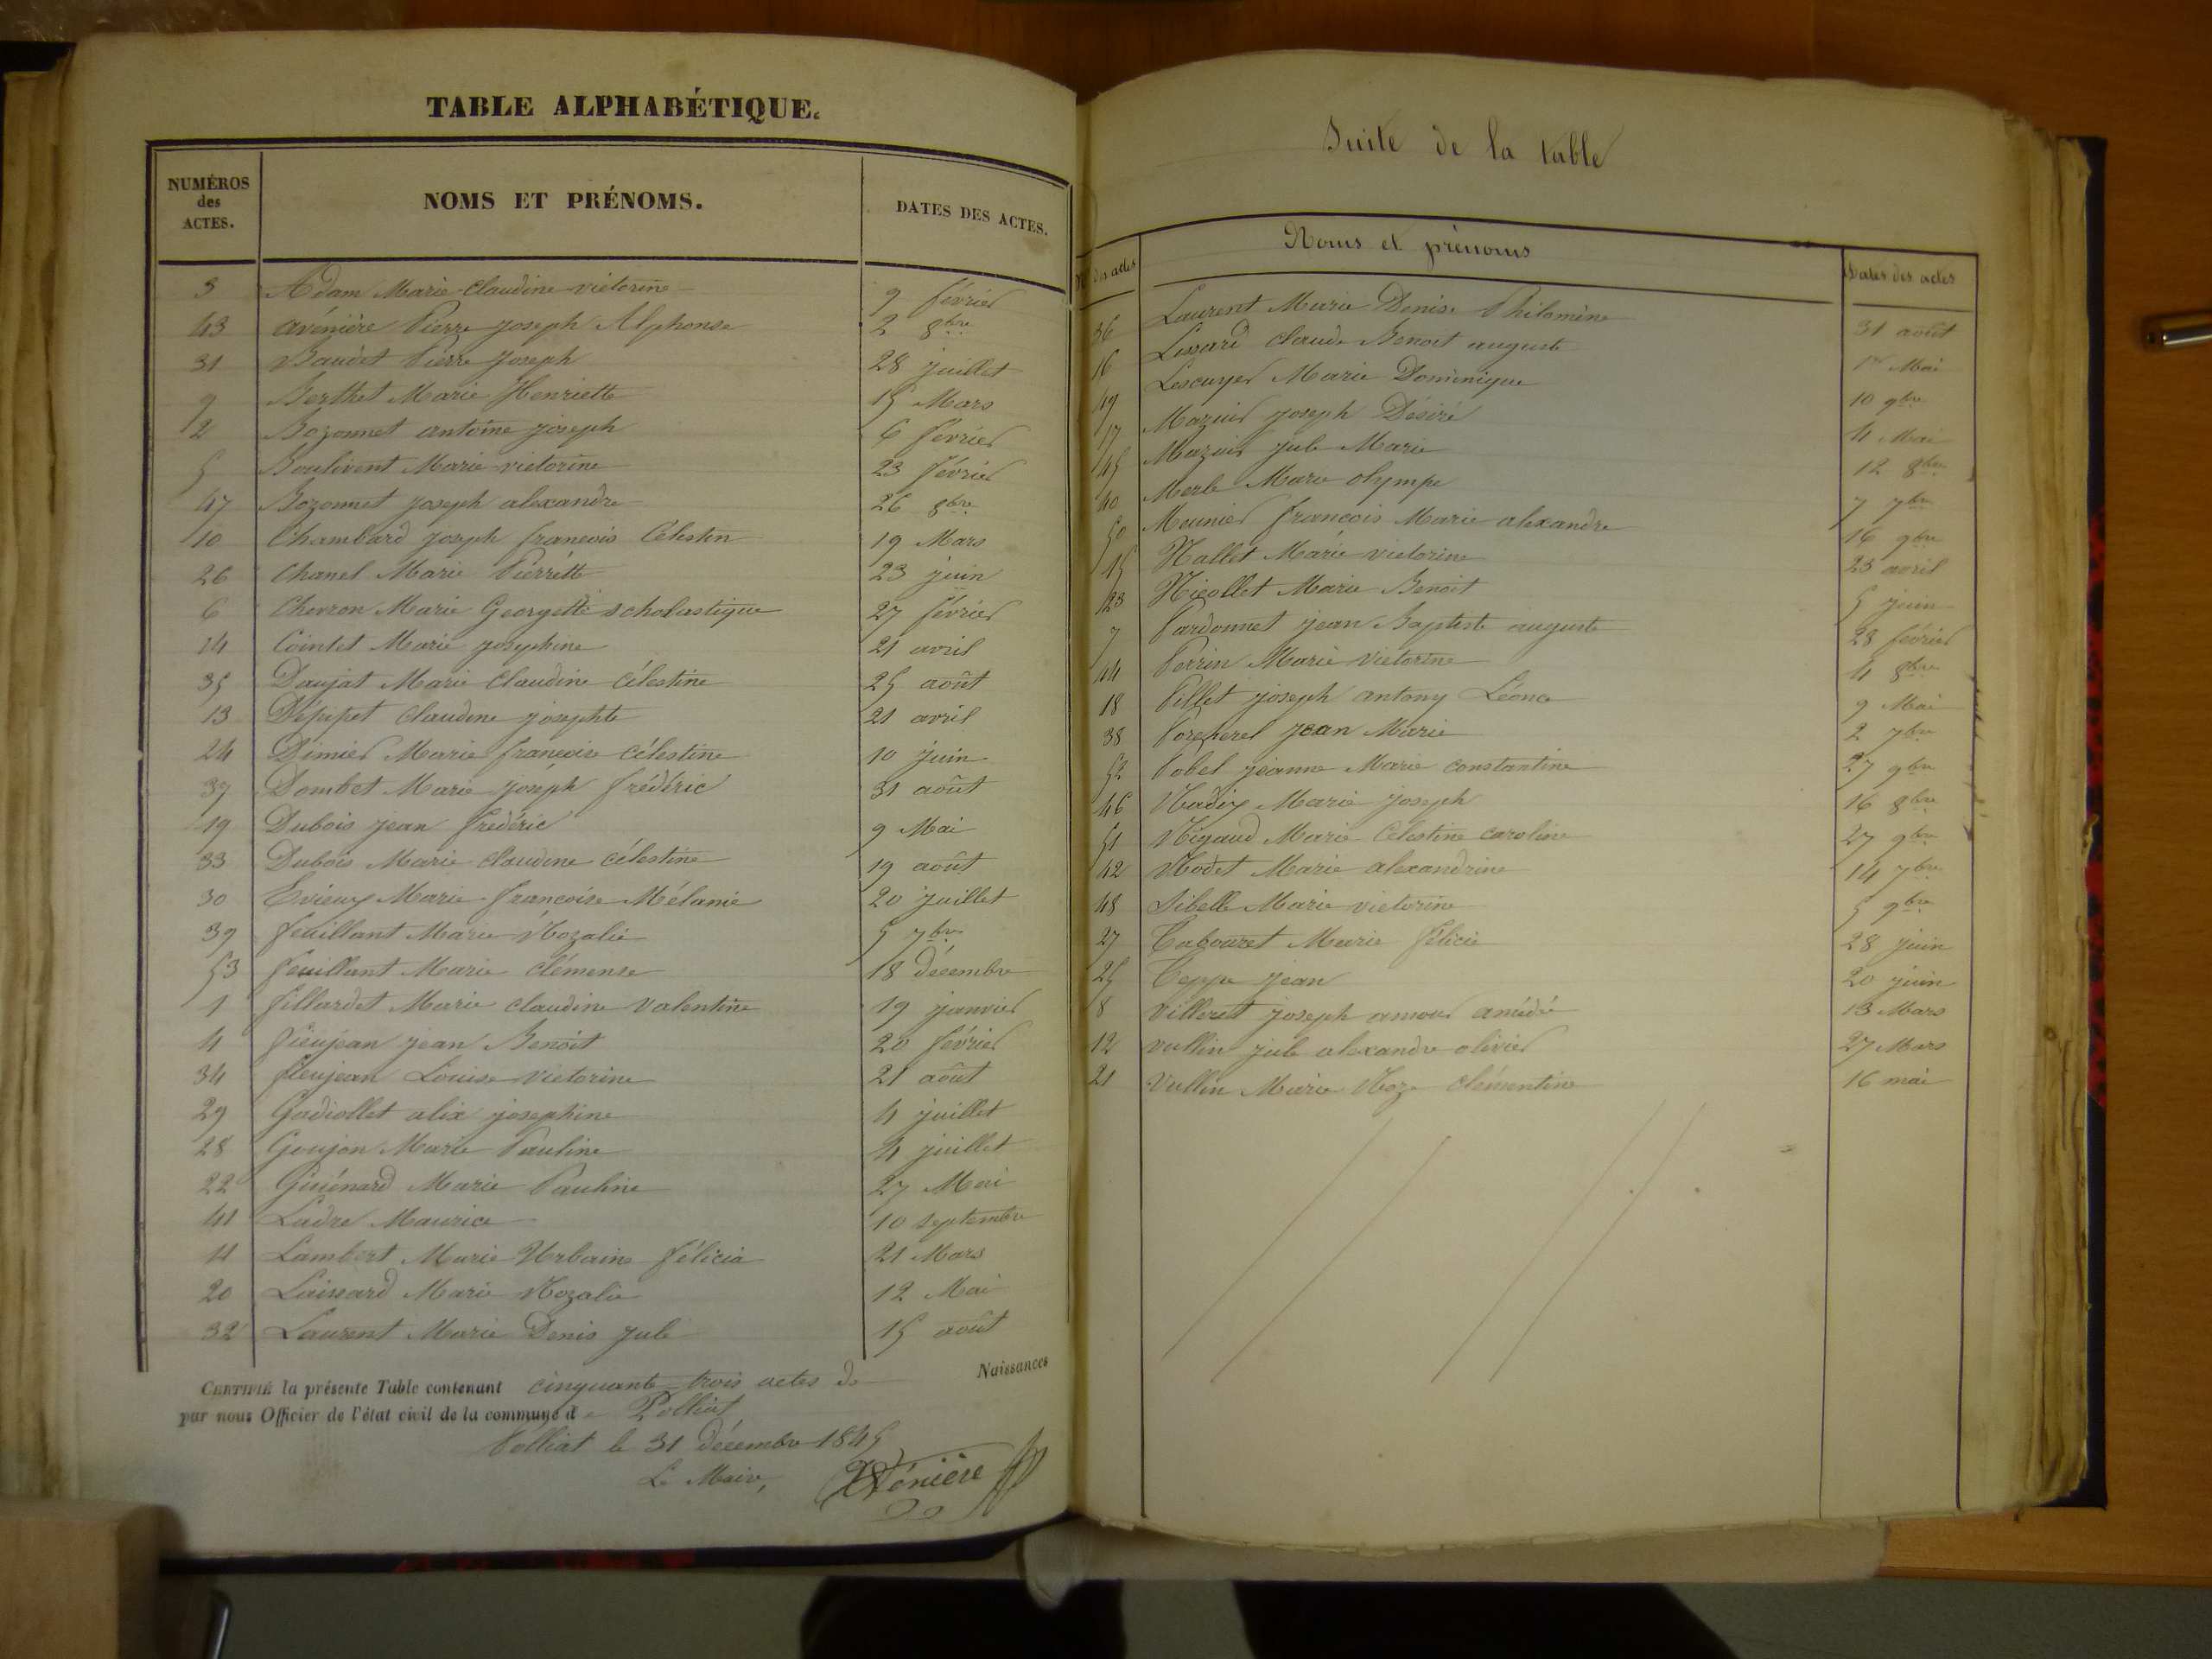 TABLE ALPHABÉTIQUE.
NUMÉROS des ACTES. NOMS ET PRÉNOMS. DATES DES ACTES.
3 Adam Marie Claudine victorine 9 février
43 avénière Pierre joseph Alphonse 2 8bre
31 Baudet Pierre Joseph 28 juillet
9 Berthet Marie Henriette 15 Mars
2 Bozonnet antoine joseph 6 février
5 Boulivent Marie victorine 23 février
47 Bozonnet joseph alexandre 26 8bre
10 Chambard joseph francois Célestin 19 Mars
26 Chanel Marie Pierrette 23 juin
6 Chevron Marie Georgette scholastique 27 février
14 Cointet Marie josephine 21 avril
35 Daujat Marie Claudine Célestine 25 août
13 Dépipet Claudine josephte 21 avril
24 Dimier Marie francoise Célestine 10 juin
37 Dombet Marie joseph frédéric 31 août
19 Dubois jean frédéric 9 Mai
33 Dubois Marie claudine célestine 19 août
30 Evieux Marie francoise Mélanie 20 juillet
39 feuillant Marie Rozalie 5 7bre
53 feuillant Marie clémense 18 décembre
1 fillardet Marie claudine valentine 19 janvier
4 fieujean jean Benoit 20 février
34 fieujean Louise victorine 21 août
29 Gadiollet alix josephine 4 juillet
28 Goujon Marie Pauline 4 juillet
22 Guénard Marie Pauline 27 Mai
41 Ladre Maurice 10 septembre
11 Lambert Marie Urbaine félicia 21 Mars
20 Laissard Marie Rozalie 12 Mai
32 Laurent Marie Denis jule 15 août
CERTIFIÉ la présente Table contenant cinquante trois actes de Naissances
par nous Officier de l'état civil de la commune de Polliat
Polliat le 31 décembre 1845
Le Maire,
Avénière
Suite de la table
Nos des actes Noms et prénoms Dates des actes
36 Laurent Marie Denise Philomine 31 août
16 Lessard claude Benoit auguste 1er Mai
49 Lescuyer Marie Dominique 10 9bre
17 Mazuir joseph Désiré 4 Mai
45 Mazuir jule Marie 12 8bre
40 Merle Marie olympe 7 7bre
50 Meunier francois Marie alexandre 16 9bre
15 Nallet Marie victorine 23 avril
23 Nicollet Marie Benoit 5 juin
7 Pardonnet jean Baptiste auguste 28 février
44 Perrin Marie victorine 4 8bre
18 Pillet joseph antony Léonce 9 Mai
38 Porcherel jean Marie 2 7bre
52 Pobel jeanne Marie constantine 27 9bre
46 Radix Marie joseph 16 8bre
51 Rigaud Marie Célestine caroline 27 9bre
42 Rodet Marie alexandrine 14 7bre
48 Sibelle Marie victorine 5 9bre
27 Tabouret Marie félicie 28 juin
25 Teppe jean 20 juin
8 Villeret joseph amour amédé 13 Mars
12 vullin jule alexandre olivier 27 Mars
21 Vullin Marie Roze clémentine 16 mai